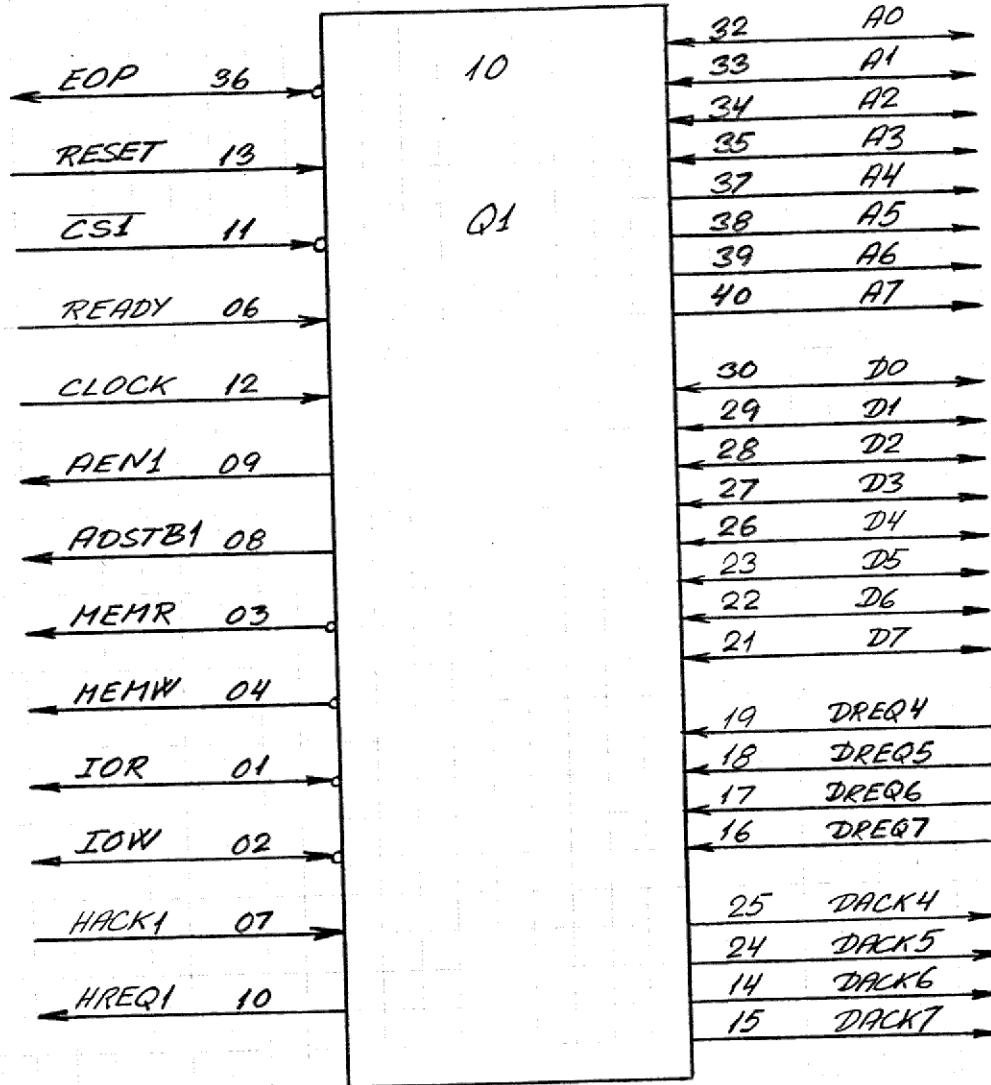 10
Q1
EOP 36
RESET 13
CS1 11
READY 06
CLOCK 12
AEN1 09
ADSTB1 08
MEMR 03
MEMW 04
IOR 01
IOW 02
HACK1 07
HREQ1 10
32 A0
33 A1
34 A2
35 A3
37 A4
38 A5
39 A6
40 A7
30 D0
29 D1
28 D2
27 D3
26 D4
23 D5
22 D6
21 D7
19 DREQ4
18 DREQ5
17 DREQ6
16 DREQ7
25 DACK4
24 DACK5
14 DACK6
15 DACK7